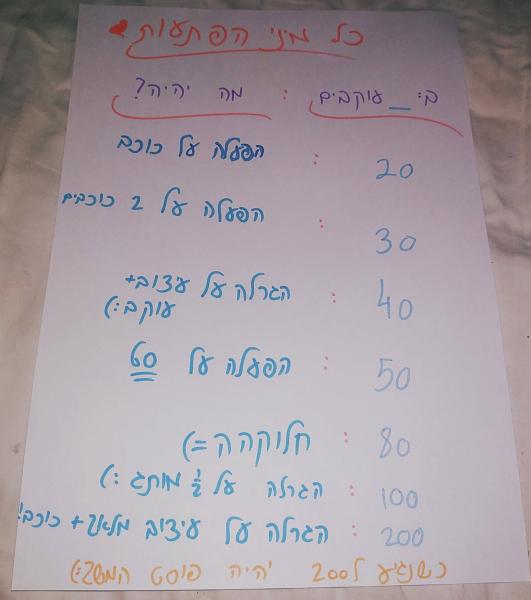 כל מיני הפתעות
ב: __ עוקבים : מה יהיה?
20 : הפעלה על כוכב
30 : הפעלה על 2 כוכבים
40 : הגרלה על עיצוב+
עוקב :)
50 : הפעלה על 60
80 : חלוקההה =)
100 : הגרלה על ½ מותג :)
200 : הגרלה על עיצוב מלא+ כוכב!
כשנגיע ל200 יהיה פוסט המשך:)